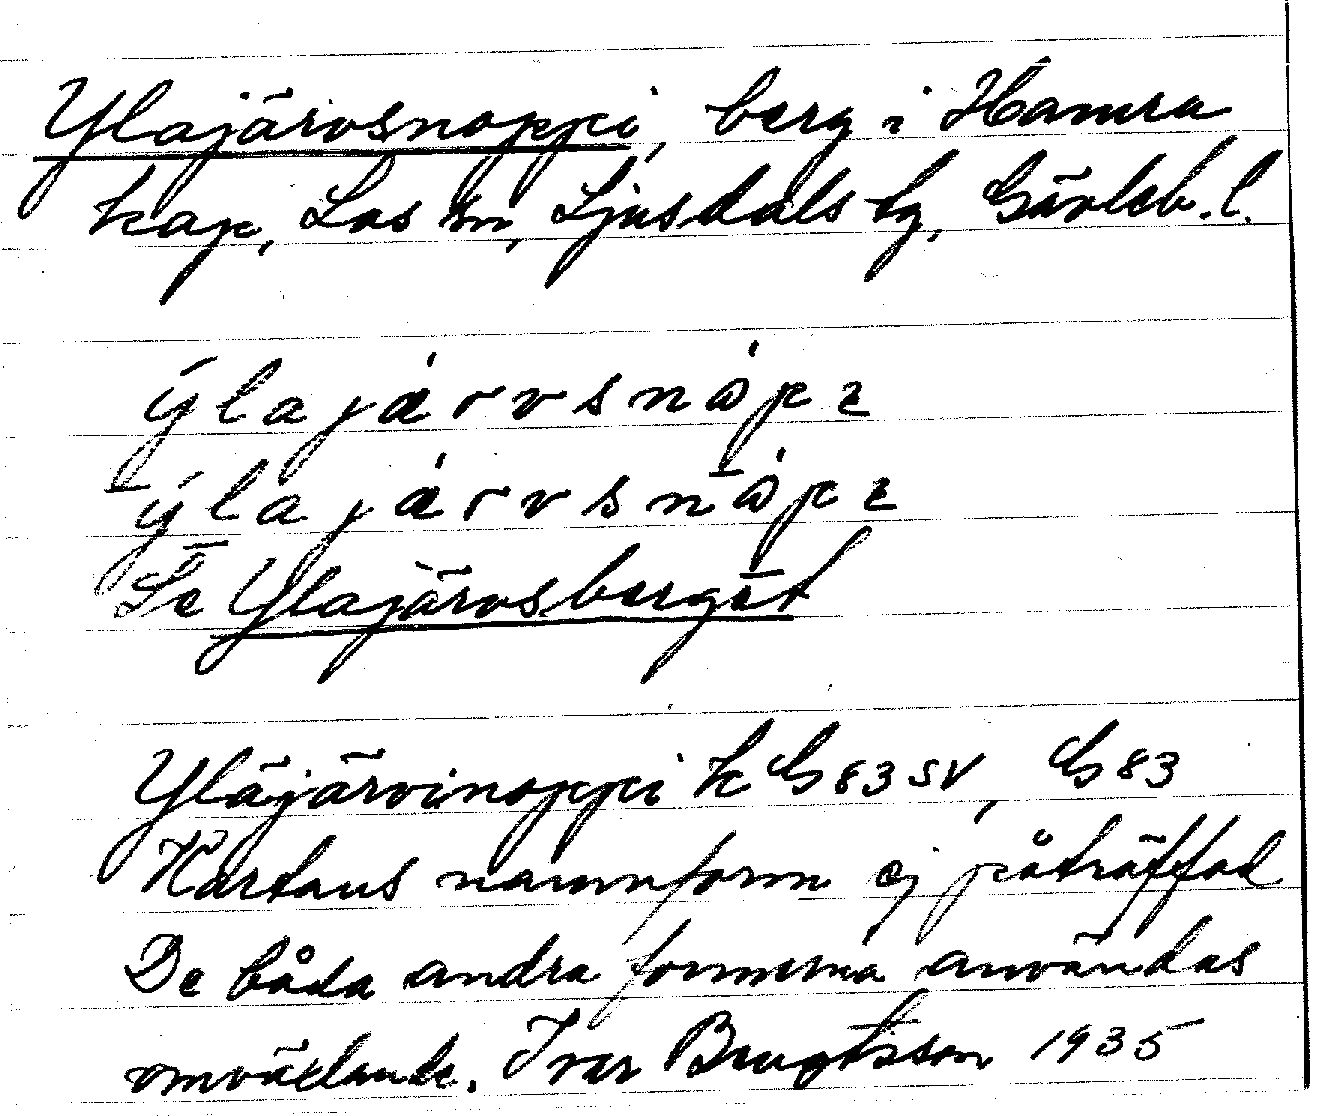 Ylajärvsnoppi, berg i Hamra
kap, Los sn, Ljusdals tg, Gävleb. l.
ýlajárvsnåpı
ýlajárvsnåpı
Se Ylajärvsberget
Yläjärvinoppi k G 83 SV, G 83
Kartans namnform ej påträffad
De båda andra formerna användas
omväxlande. Ivar Bengtsson 1935